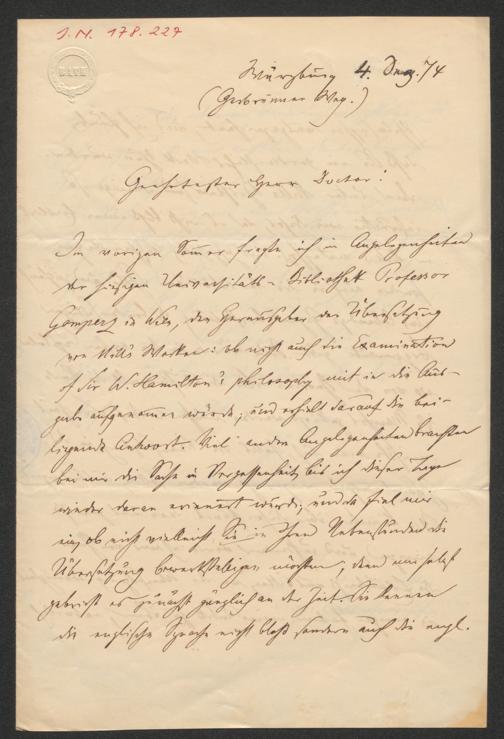 J. N. 178.227
BATH
Würzburg 4. Dez. 74
(Gerbrunner Weg.)
Geehrtester Herr Doctor!
Im vorigen Sommer fragte ich in Angelegenheiten
der hiesigen Universitäts-Bibliothek Professor
Gomperz in Wien, den Herausgeber der Übersetzung
von Mill's Werken: ob nicht auch die Examination
of Sir W. Hamilton's philosophy mit in die Aus-
gabe aufgenommen würde; und erhielt darauf die bei-
liegende Antwort. Viel andre Angelegenheiten brachten
bei mir die Sache in Vergessenheit, bis ich dieser Tage
wieder daran erinnert wurde; und da fiel mir
ein, ob nicht vielleicht Sie in Ihren Nebenstunden die
Übersetzung bewerkstelligen möchten, denn mir selbst
gebricht es zunächst gänzlich an der Zeit. Sie kennen
die englische Sprache nicht bloß sondern auch die engl.